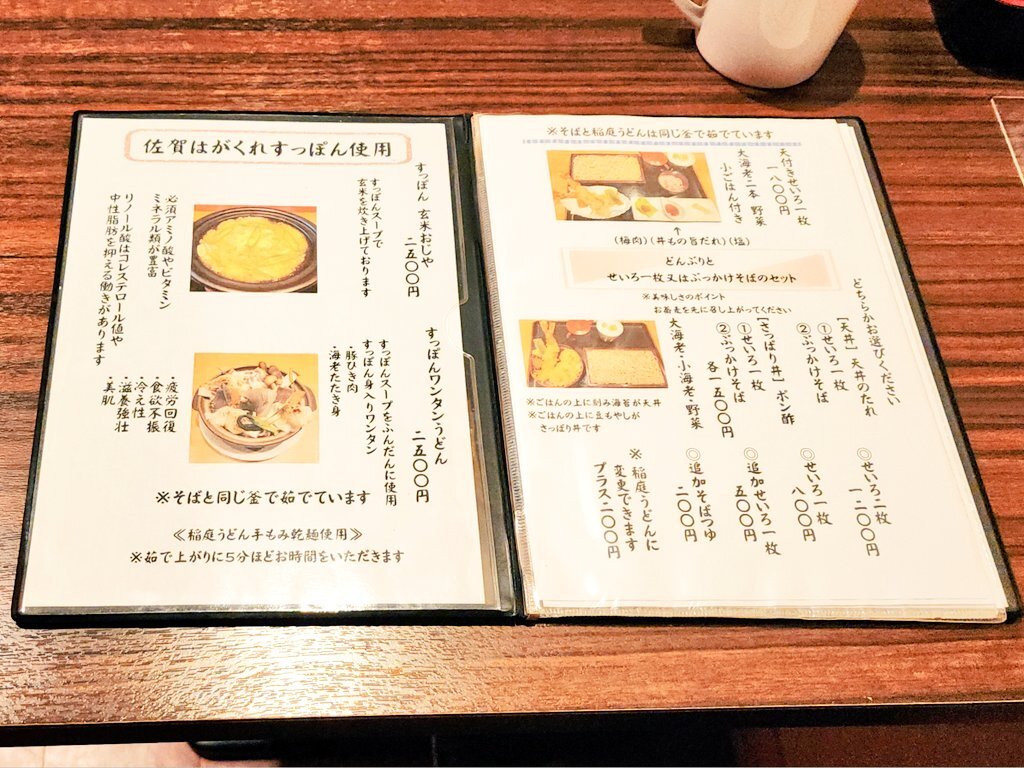 佐賀はがくれすっぽん使用
すっぽん 玄米おじや
二五〇〇円
すっぽんスープで
玄米を炊き上げております
必須アミノ酸やビタミン
ミネラル類が豊富
リノール酸はコレステロール値や
中性脂肪を抑える働きがあります
すっぽんワンタンうどん
二五〇〇円
すっぽんスープをふんだんに使用
すっぽん身入りワンタン
・豚ひき肉
・海老たたき身
・疲労回復
・食欲不振
・冷え性
・滋養強壮
・美肌
※そばと同じ釜で茹でています
≪稲庭うどん手もみ乾麺使用≫
※茹で上がりに5分ほどお時間をいただきます
※そばと稲庭うどんは同じ釜で茹でています
天付きせいろ一枚
一、八〇〇円
大海老二本 野菜
小ごはん付き
↑
(梅肉)(丼もの旨だれ)(塩)
どんぶりと
せいろ一枚又はぶっかけそばのセット
※美味しさのポイント
お蕎麦を先に召し上がってください
どちらかお選びください
[天丼] 天丼のたれ
①せいろ一枚
②ぶっかけそば
[さっぱり丼] ポン酢
①せいろ一枚
②ぶっかけそば
各一五〇〇円
大海老・小海老・野菜
※ごはんの上に刻み海苔が天丼
※ごはんの上に豆もやしが
さっぱり丼です
◎せいろ二枚
一、二〇〇円
◎せいろ一枚
八〇〇円
◎追加せいろ一枚
五〇〇円
◎追加そばつゆ
二〇〇円
※稲庭うどんに
変更できます
プラス二〇〇円